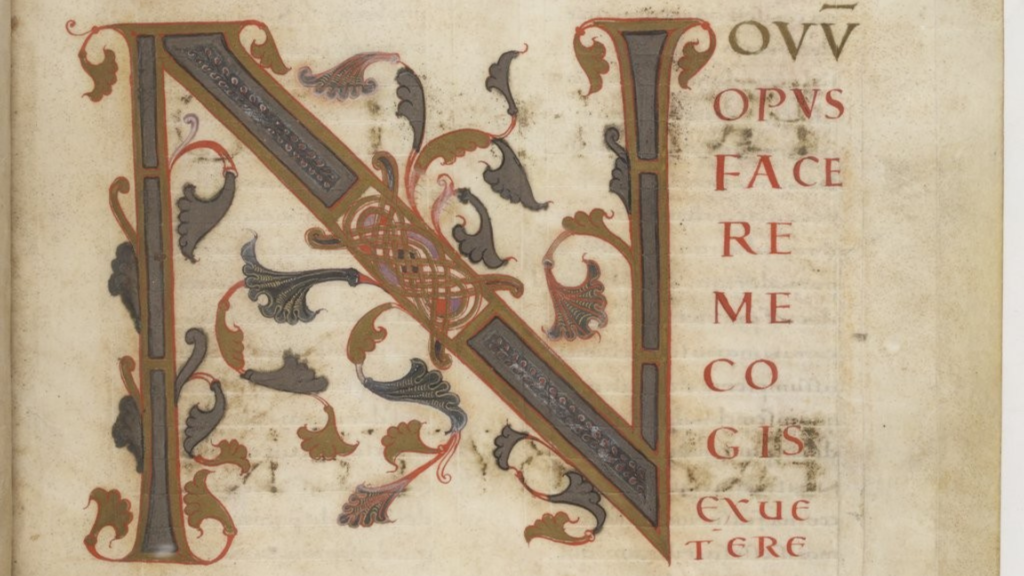 NOVV̄
OPVS
FACE
RE
ME
CO
GIS
EXUE
TERE